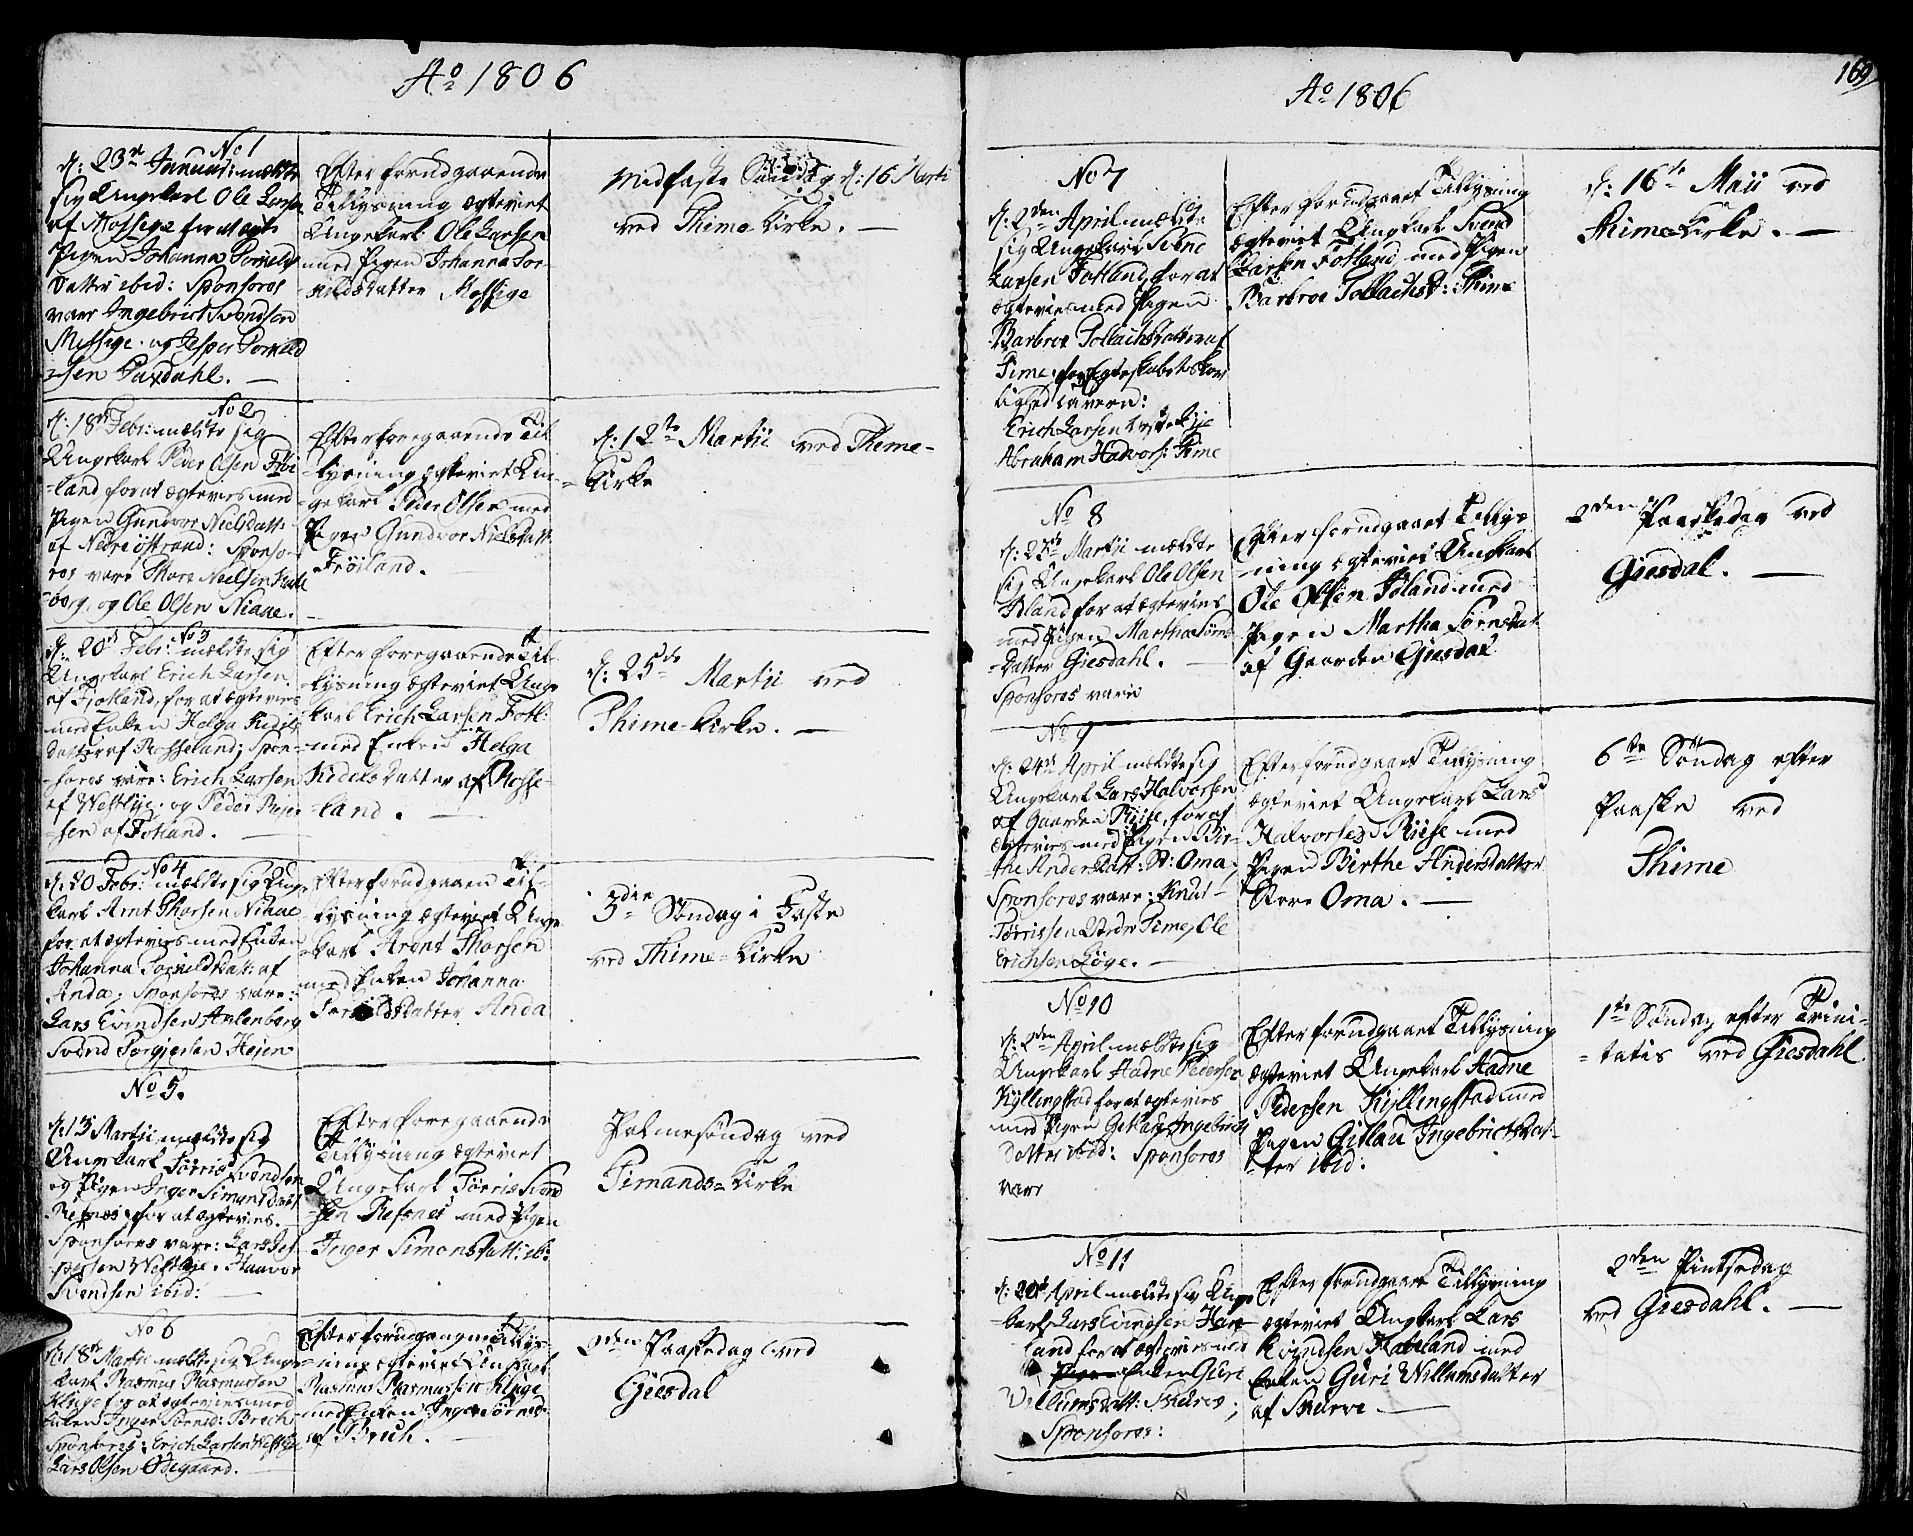 Ao 1806
No 1
d: 23de Januari: meldte
sig Ungekarl Ole Larsen
af Mossige for at ægte
Pigen Johanna Torkilds
Datter ibid: Sponsores
vare Ingebrict Svendsen
Mossige og Jesper Torkild
-sen Taxdahl. —
Efter forudgaaende
Tillysning ægteviet
Ungekarl Ole Larsen
med Pigen Johanna Tor-
kildsdatter Mossige
Midfaste Søndag d: 16 Marti
ved Thime Kirke. —
No 2
d: 18de Febr: meldte sig
Ungekarl Peder Olsen Frøi
-land for at ægtevies med
Pigen Gundvor Nielsdatt:
af Nedre Østraad: Sponso-
res vare Thore Neelsen
borg, og Ole Olsen Niaae.
Efter foregaaende Til
-lysning ægteviet Un-
gekarl Peder Olsen med
Pigen Gundvor Nielsdatt
Frøiland.
d: 12te Martii ved Thime-
Kirke
No 3
d: 20de Febr: meldte sig
Ungekarl Erich Larsen
af Fjotland, for at ægtevies
med Enken Helga Kedils
datter af Rosseland; Spon-
-sores vare: Erich Larsen
af Westlye; og Peder
-sen af Fotland. —
Efter foregaaende Til-
-lysning ægteviet Unge
karl Erich Larsen Fotl:
med Enken Helga
Kedelsdatter af Rosse-
-land. —
d: 25de Martii ved
Thime-Kirke. —
No 4
d: 20 Febr: meldte sig Unge
karl Arnt Thorsen Niaae
for at ægtevies med Enken
Johanna Torkildsdatt: af
Anda; Sponsores vare:
Lars Eivindsen Aulenborg
Svend Torgjersen Hejen
Efter forudgaaen Til-
lysning ægteviet Unge
karl Arent Thorsen
med Enken Johanna
Torkildsdatter Anda
3die Søndag i Faste
ved Thime-Kirke
No 5.
d: 13 Martii meldte sig
Ungekarl Tørris Svendsen
og Pigen Inger Simonsdatt
Refsnes for at ægtevies.
Sponsores vare: Lars Jes
persen Westlye. Haavor
Svendsen ibid: —
Efter foregaaende
Tillysning ægteviet
Ungekarl Tørris Svend
-sen Refsnes med Pigen
Inger Simonsdatt: ib:
Palmesøndag ved
Timands-Kirke
No 6
d: 18de Martii meldte sig Unge
karl Rasmus Rasmussen
Kleige for at ægtevies med
Enken Inger Sørensd: Bruch
Sponsores: Erich Larsen Westlye
Lars Olsen Ødegaard. —
Efter forudgangne Tillys-
-ning ægteviet Ungkarl
Rasmus Rasmussen Kleige
med Enken Inger Sørensd:
af Bruh. —
2den Paaskedag ved
Giesdal
Ao 1806
169
No 7
d: 2den April meldte
sig Ungekarl Svend
Larsen Fotland, for at
ægtevies med Pigen
Barbroe Tollachsdatter af
Time: for Ægteskabets Lov
lighed cavern:
Erich Larsen Vestre Lye
Abraham Hadvors: Time
Efter forudgaaet Tillysning
ægteviet Ungkarl Svend
Larsen Fotland med Pigen
Barbroe Tollachsd: Thime
d: 16de Maii ved
Thime-Kirke. —
No 8
d: 23de Martii meldte
sig Ungekarl Ole Olsen
for at ægtevies
med Pigen Martha Sørens
-datter Giesdahl. —
Sponsores vare
Efter forudgaaet Tillys
-ning ægteviet Ungkarl
Ole Olsen med
Pigen Martha Sørensdat
af Gaarden Giesdal
2den Paaskedag ved
Giesdal. —
No 9
d: 24de April meldte sig
Ungekarl Lars Halvorsen
af Gaarden Riise, for at
ægtevies med Pigen Bir-
the Andersdatt: St: Oma,
Sponsores vare: Knut
Tørrissen Østre Time, Ole
Erichsen Løge. —
Efter forudgaaet Tillysning
ægteviet Ungekarl Lars
Halvorsen Riise med
Pigen Birthe Andersdatter
Store Oma. —
6te Søndag efter
Paaske ved
Thime
No 10
d: 2den April meldte sig
Ungekarl Aadne Pedersen
Kyllingstad for at ægtevies
med Pigen Gitlau Ingebricts
Datter ibid: Sponsores
vare
Efter forudgaaet Tillysning
ægteviet Ungekarl Aadne
Pedersen Kyllingstad med
Pigen Gitlau Ingebrictsdat-
-ter ibid:
1ste Søndag efter Trini-
-tatis ved Giesdahl
No 11
d: 20de April meldte sig Unge
karl Lars Eivindsen Haa-
land for at ægtevies med
Enken Guri
Villumsdatt: Skurve;
Sponsores:
Efter forudgaaet Tillysning
ægteviet Ungkarl Lars
Eivindsen Haaland med
Enken Guri Willumsdatter
af Skurve. —
2den Pintsedag
ved Giesdahl. —